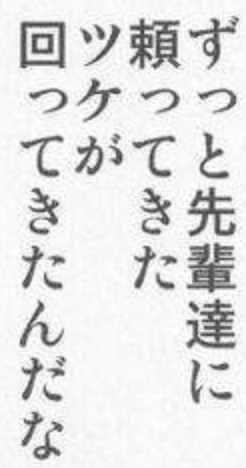 ずっと先輩達に
頼ってきた
ツケが
回ってきたんだな